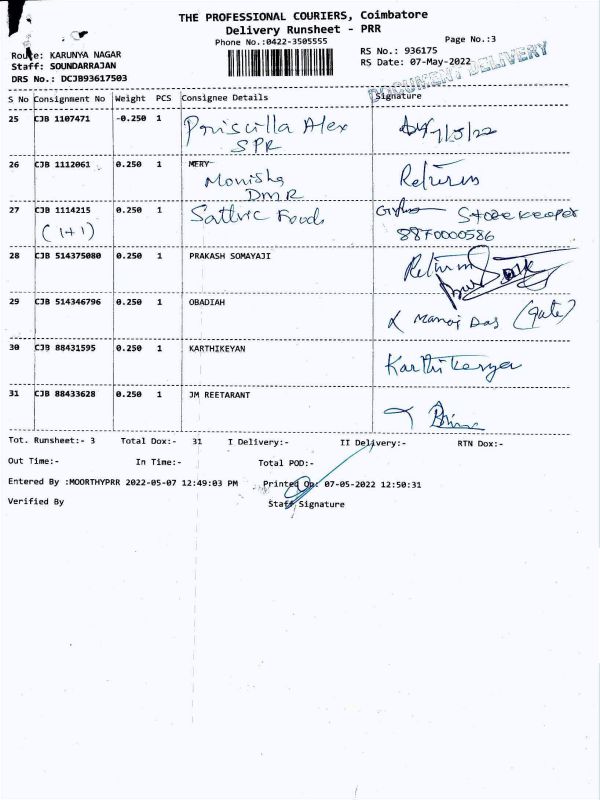 THE PROFESSIONAL COURIERS, Coimbatore
Delivery Runsheet - PRR
Phone No.:0422-3505555
Page No.:3
Route: KARUNYA NAGAR
RS No.: 936175
Staff: SOUNDARRAJAN
RS Date: 07-May-2022
DRS No.: DCJB93617503
DOCUMENT DELIVERY
S No Consignment No Weight PCS Consignee Details Signature
25 CJB 1107471 -0.250 1 Priscilla Alex 7/5/22
SPR
26 CJB 1112061 0.250 1 MERY Return
Monisha
DMR
27 CJB 1114215 0.250 1 Sathvic Foods Store keeper
(1+1) 8870000586
28 CJB 514375080 0.250 1 PRAKASH SOMAYAJI Return
29 CJB 514346796 0.250 1 OBADIAH
Manoj Das (gate)
30 CJB 88431595 0.250 1 KARTHIKEYAN Karthikeyan
31 CJB 88433628 0.250 1 JM REETARANT
Tot. Runsheet:- 3 Total Dox:- 31 I Delivery:- II Delivery:- RTN Dox:-
Out Time:- In Time:- Total POD:-
Entered By :MOORTHYPRR 2022-05-07 12:49:03 PM Printed On: 07-05-2022 12:50:31
Verified By Staff Signature